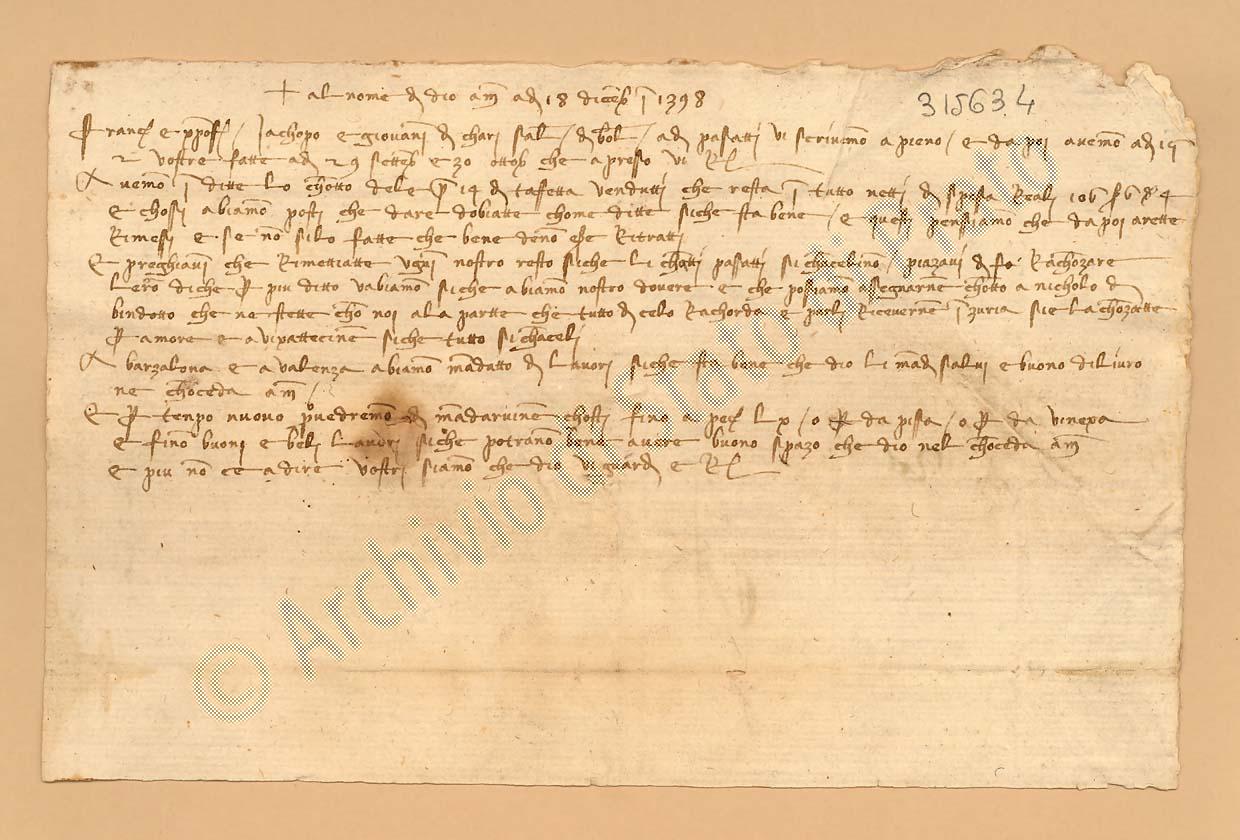 + al nome d dio am ad 18 diceb i 1398
315634
Franc e / Jachopo e giovani d chari sal / d bol / ad pasatti vi scrivemo a pieno / e da poi avemo ad iq
2 vostre fatte ad 29 setteb e 30 ottob che apresso vi R
Avemo i ditte lo chotto dele 14 d taffetta vendutti che resta i tutto netti d spesa Reali 106 s 6 d 4
E chossi abiamo posti che dare dobiatte chome ditte siche sta bene / e questi pensiamo che da poi arette
Rimessi e se no silo fatte che bene deno ese Ritratti
E preghiavi che Rimettiatte ugni nostro resto siche li chotti pasatti si chacelino / piazavi d fo Rachozare
lero diche p piu ditto vabiamo siche abiamo nostro dovere e che possiamo assegnarne chotto a nicholo d
bindotto che ne stette cho noi ala partte che tutto d celo Rachorda e Riceverne i zuria sie la chozatte
p amore e a vipattecine siche tutto si chaceli
A barzalona e a valenza abiamo madatto d lavori siche sta bene che dio li mad salvi e buono dilivro
ne choceda am /
E p tenpo nuovo pvedremo d madarvine chosti fino a pec lx / o p da pissa / o p da vinexa
e fino buoni e beli lavori siche potrano bene avere buono spazo che dio nel choceda am
E piu no ce a dire vostri siamo che dio vi guard e R
© Archivio di Stato di Prato